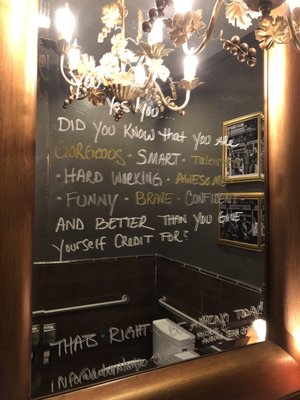 You
Yes You
DID YOU KNOW THAT YOU ARE
GORGEOUS - SMART - Talent
· HARD WORKING · AWESOME
· FUNNY · BRAVE · CONFIDENT
AND BETTER THAN YOU GIVE
Yourself CREDIT FOR?
THATS RIGHT
BE AMAZING TODAY!